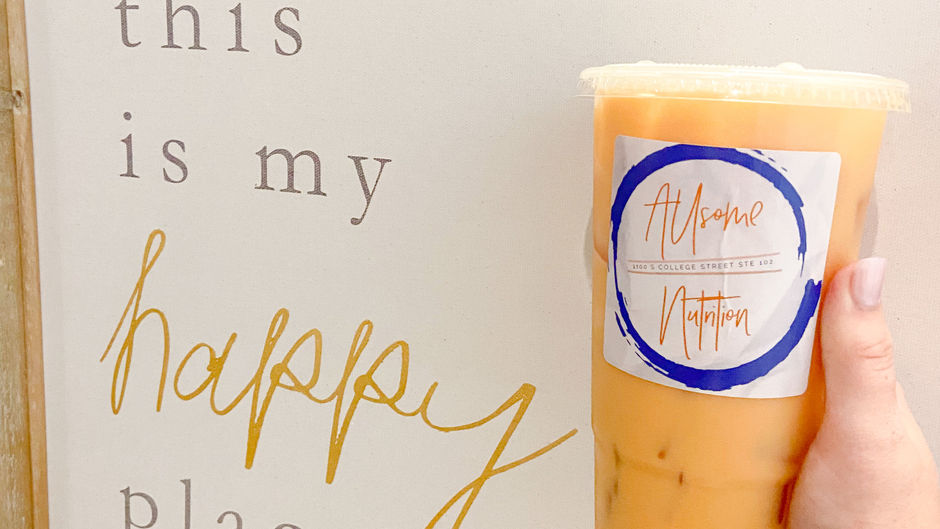 this
is my
happy
place
AUsome
1100 S COLLEGE STREET STE 102
Nutrition